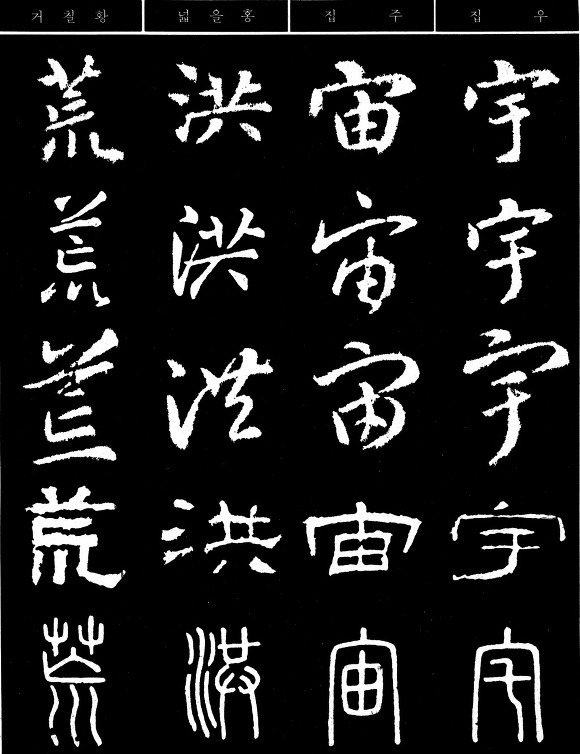 집 우
宇宇宇宇宇
집 주
宙宙宙宙宙
넓 을 홍
洪洪洪洪洪
거 칠 황
荒荒荒荒荒